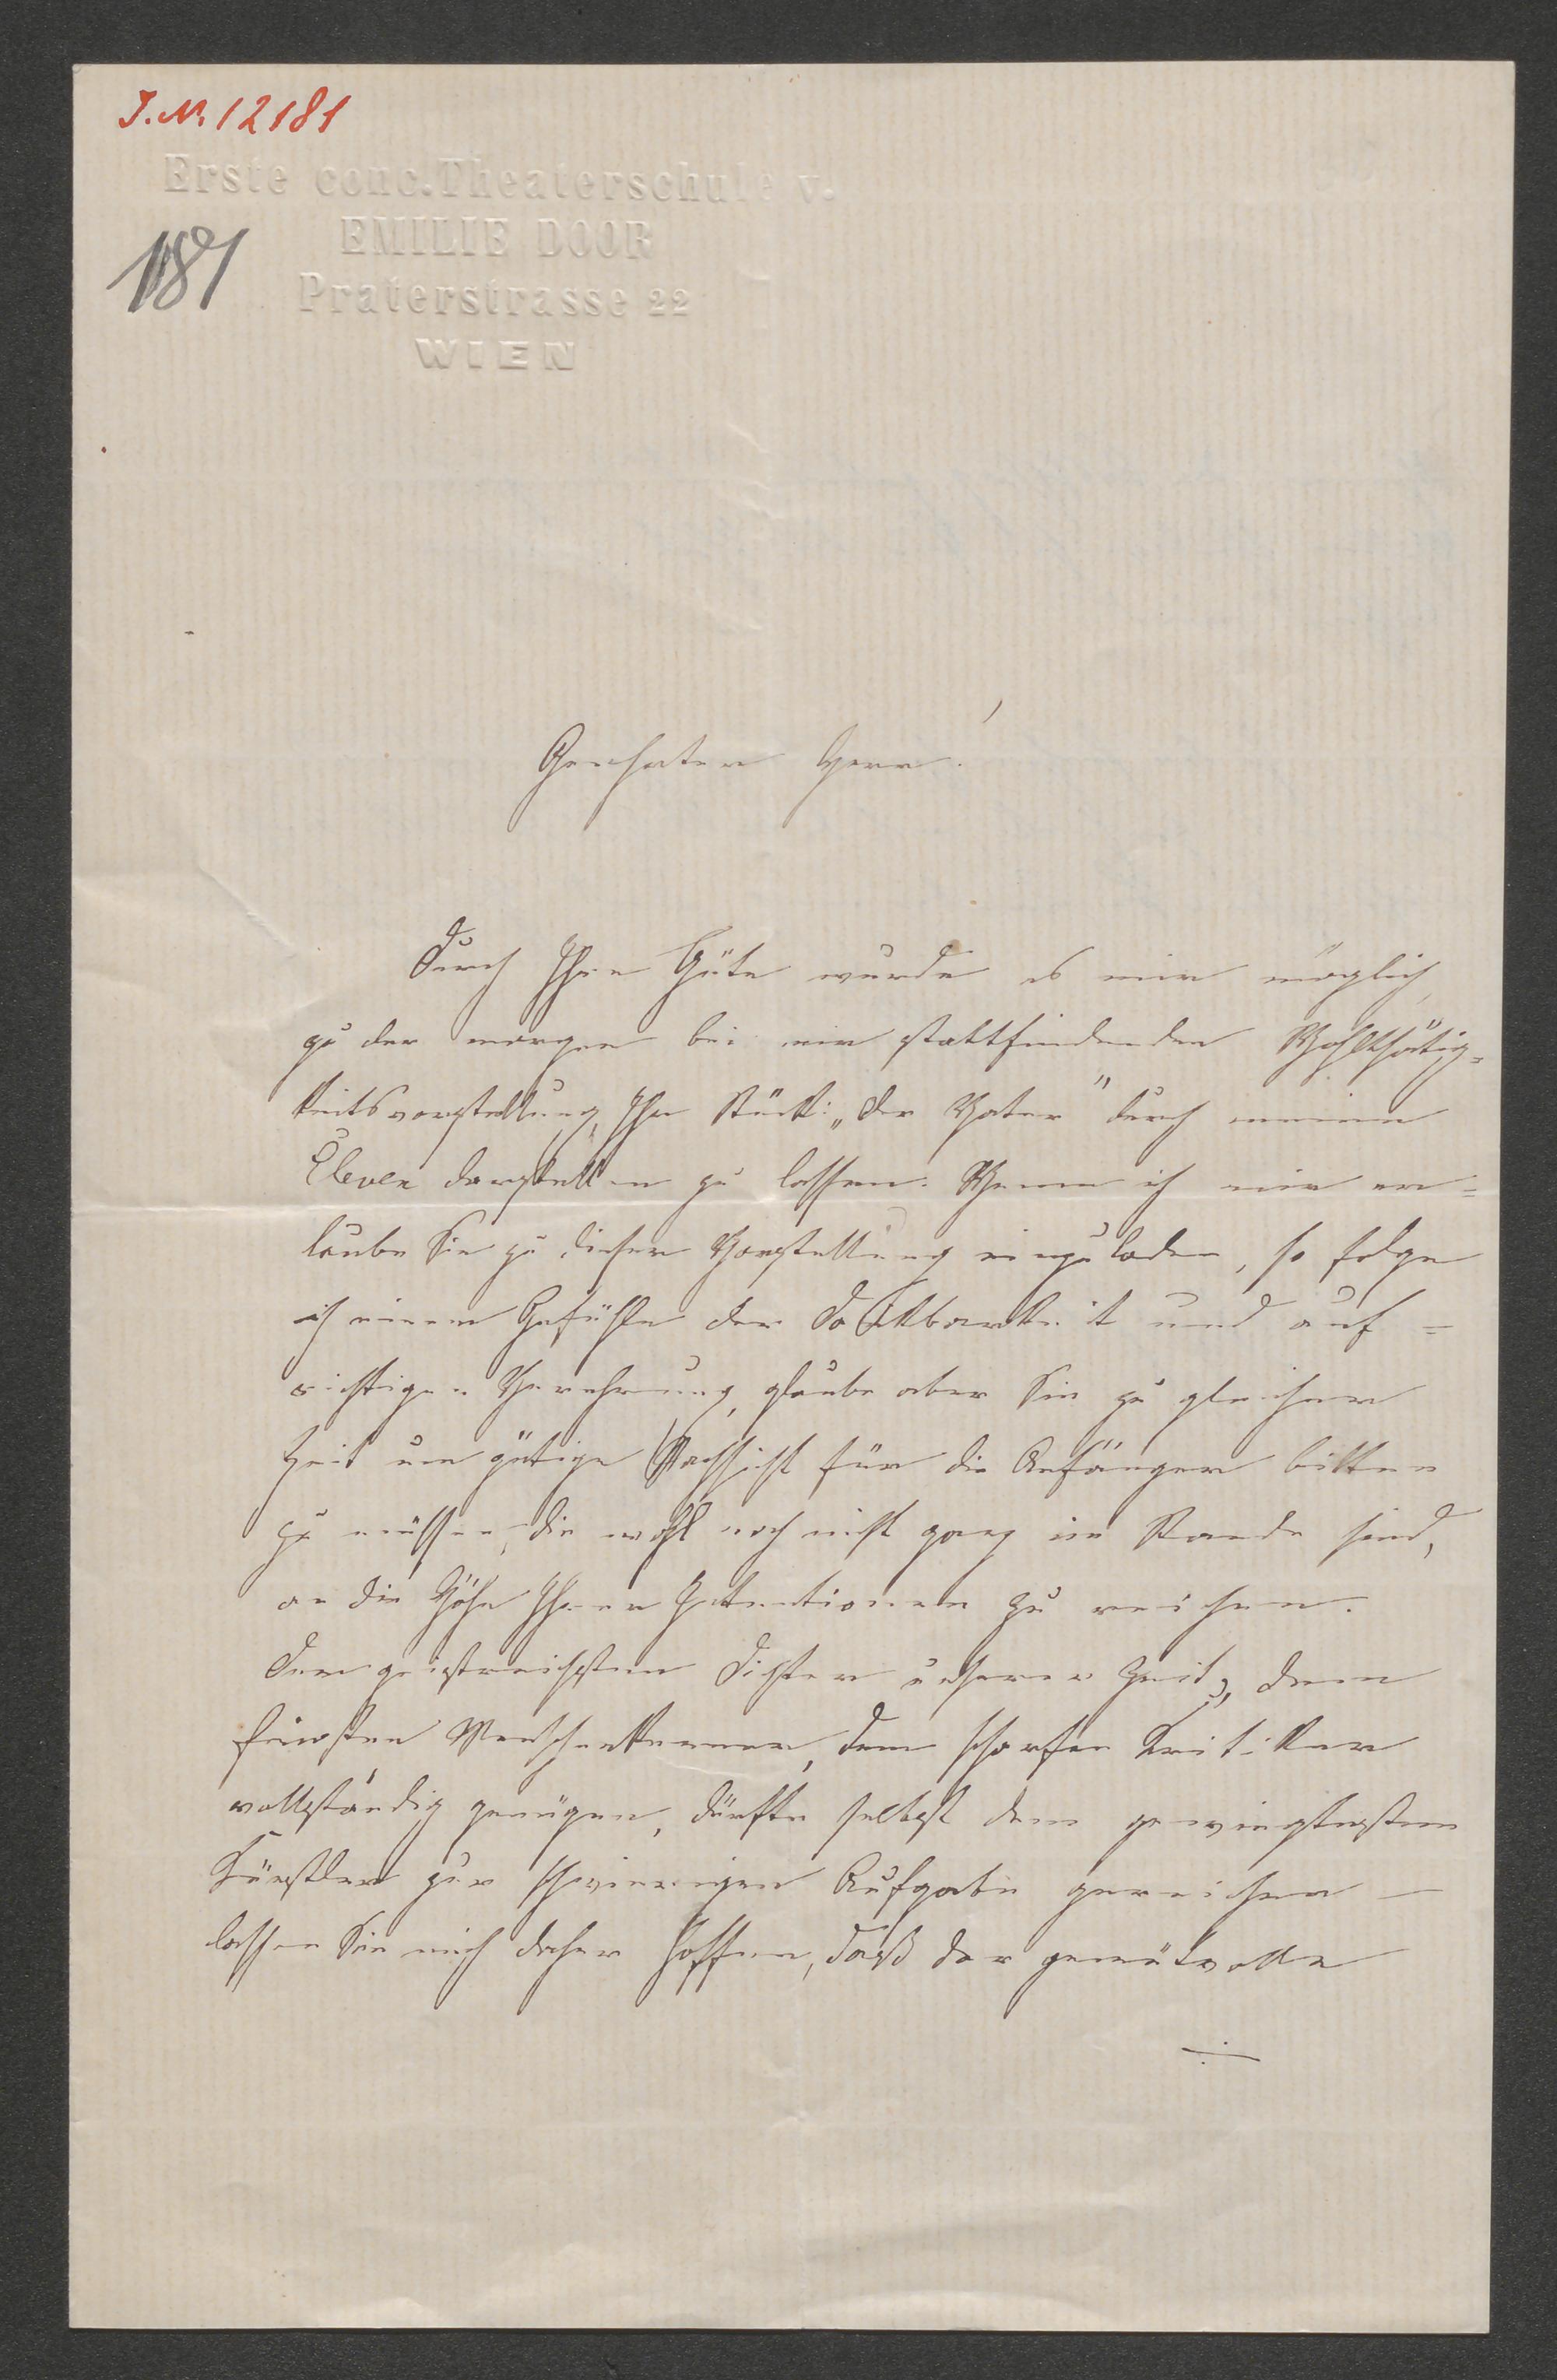 J.N. 12181
Erste conc. Theaterschule v.
EMILIE DOOR
Praterstrasse 22
WIEN
181
Geehrter Herr!
Durch Ihre Güte wurde es mir möglich,
zu der morgen bei mir stattfindenden Wohlthätig=
keitsvorstellung, Ihr Stück: „Der Vater" durch meine
Eleven darstellen zu lassen. Wenn ich mir er=
laube Sie zu dieser Vorstellung einzuladen, so folge
ich einem Gefühle der Dankbarkeit und auf=
richtigen Verehrung, glaube aber Sie zu gleicher
Zeit um gütige Nachsicht für die Anfänger bitten
zu müssen, die wohl noch nicht ganz im Stande sind,
an die Höhe Ihrer Intentionen zu reichen.
Dem geistreichsten Dichter unserer Zeit, dem
feinsten Menschenkenner, dem scharfen Kritiker
vollständig genügen, dürfte selbst dem gewiegtesten
Künstler zur schwierigen Aufgabe gereichen —
lassen Sie mich daher hoffen, daß der gemütvolle